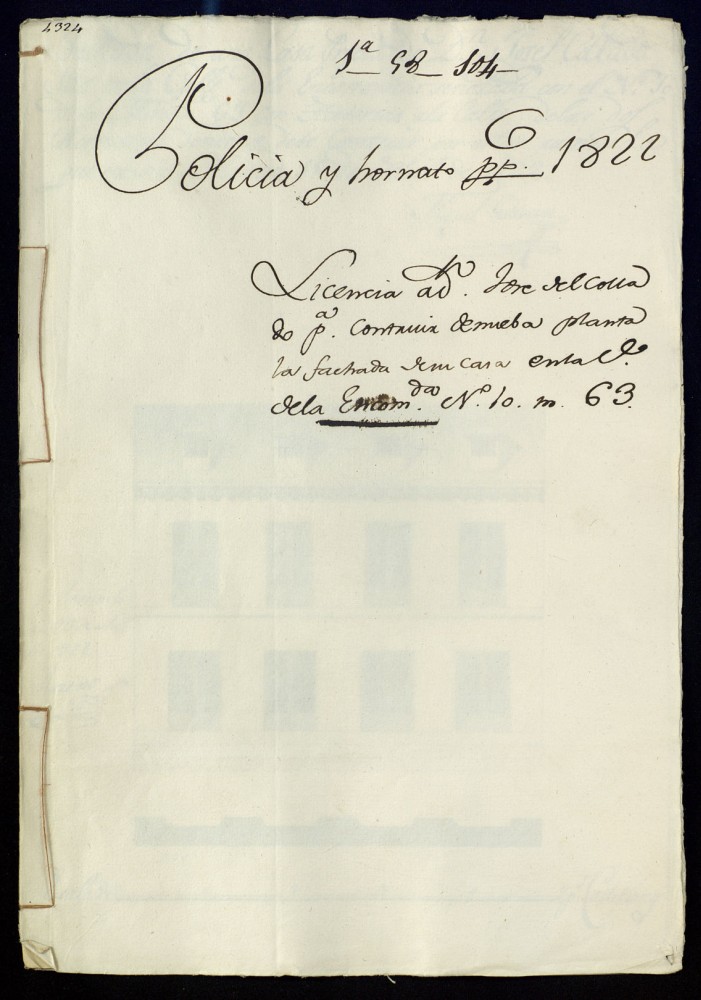 4324
1ª 58 104
Policia y hornato pp.co 1822
Licencia a Dn. Jose del Colla
do pª. Contruir de nueba planta
la fachada de su casa en la Ce.
de la Encomda. Nº 10. m. 63.